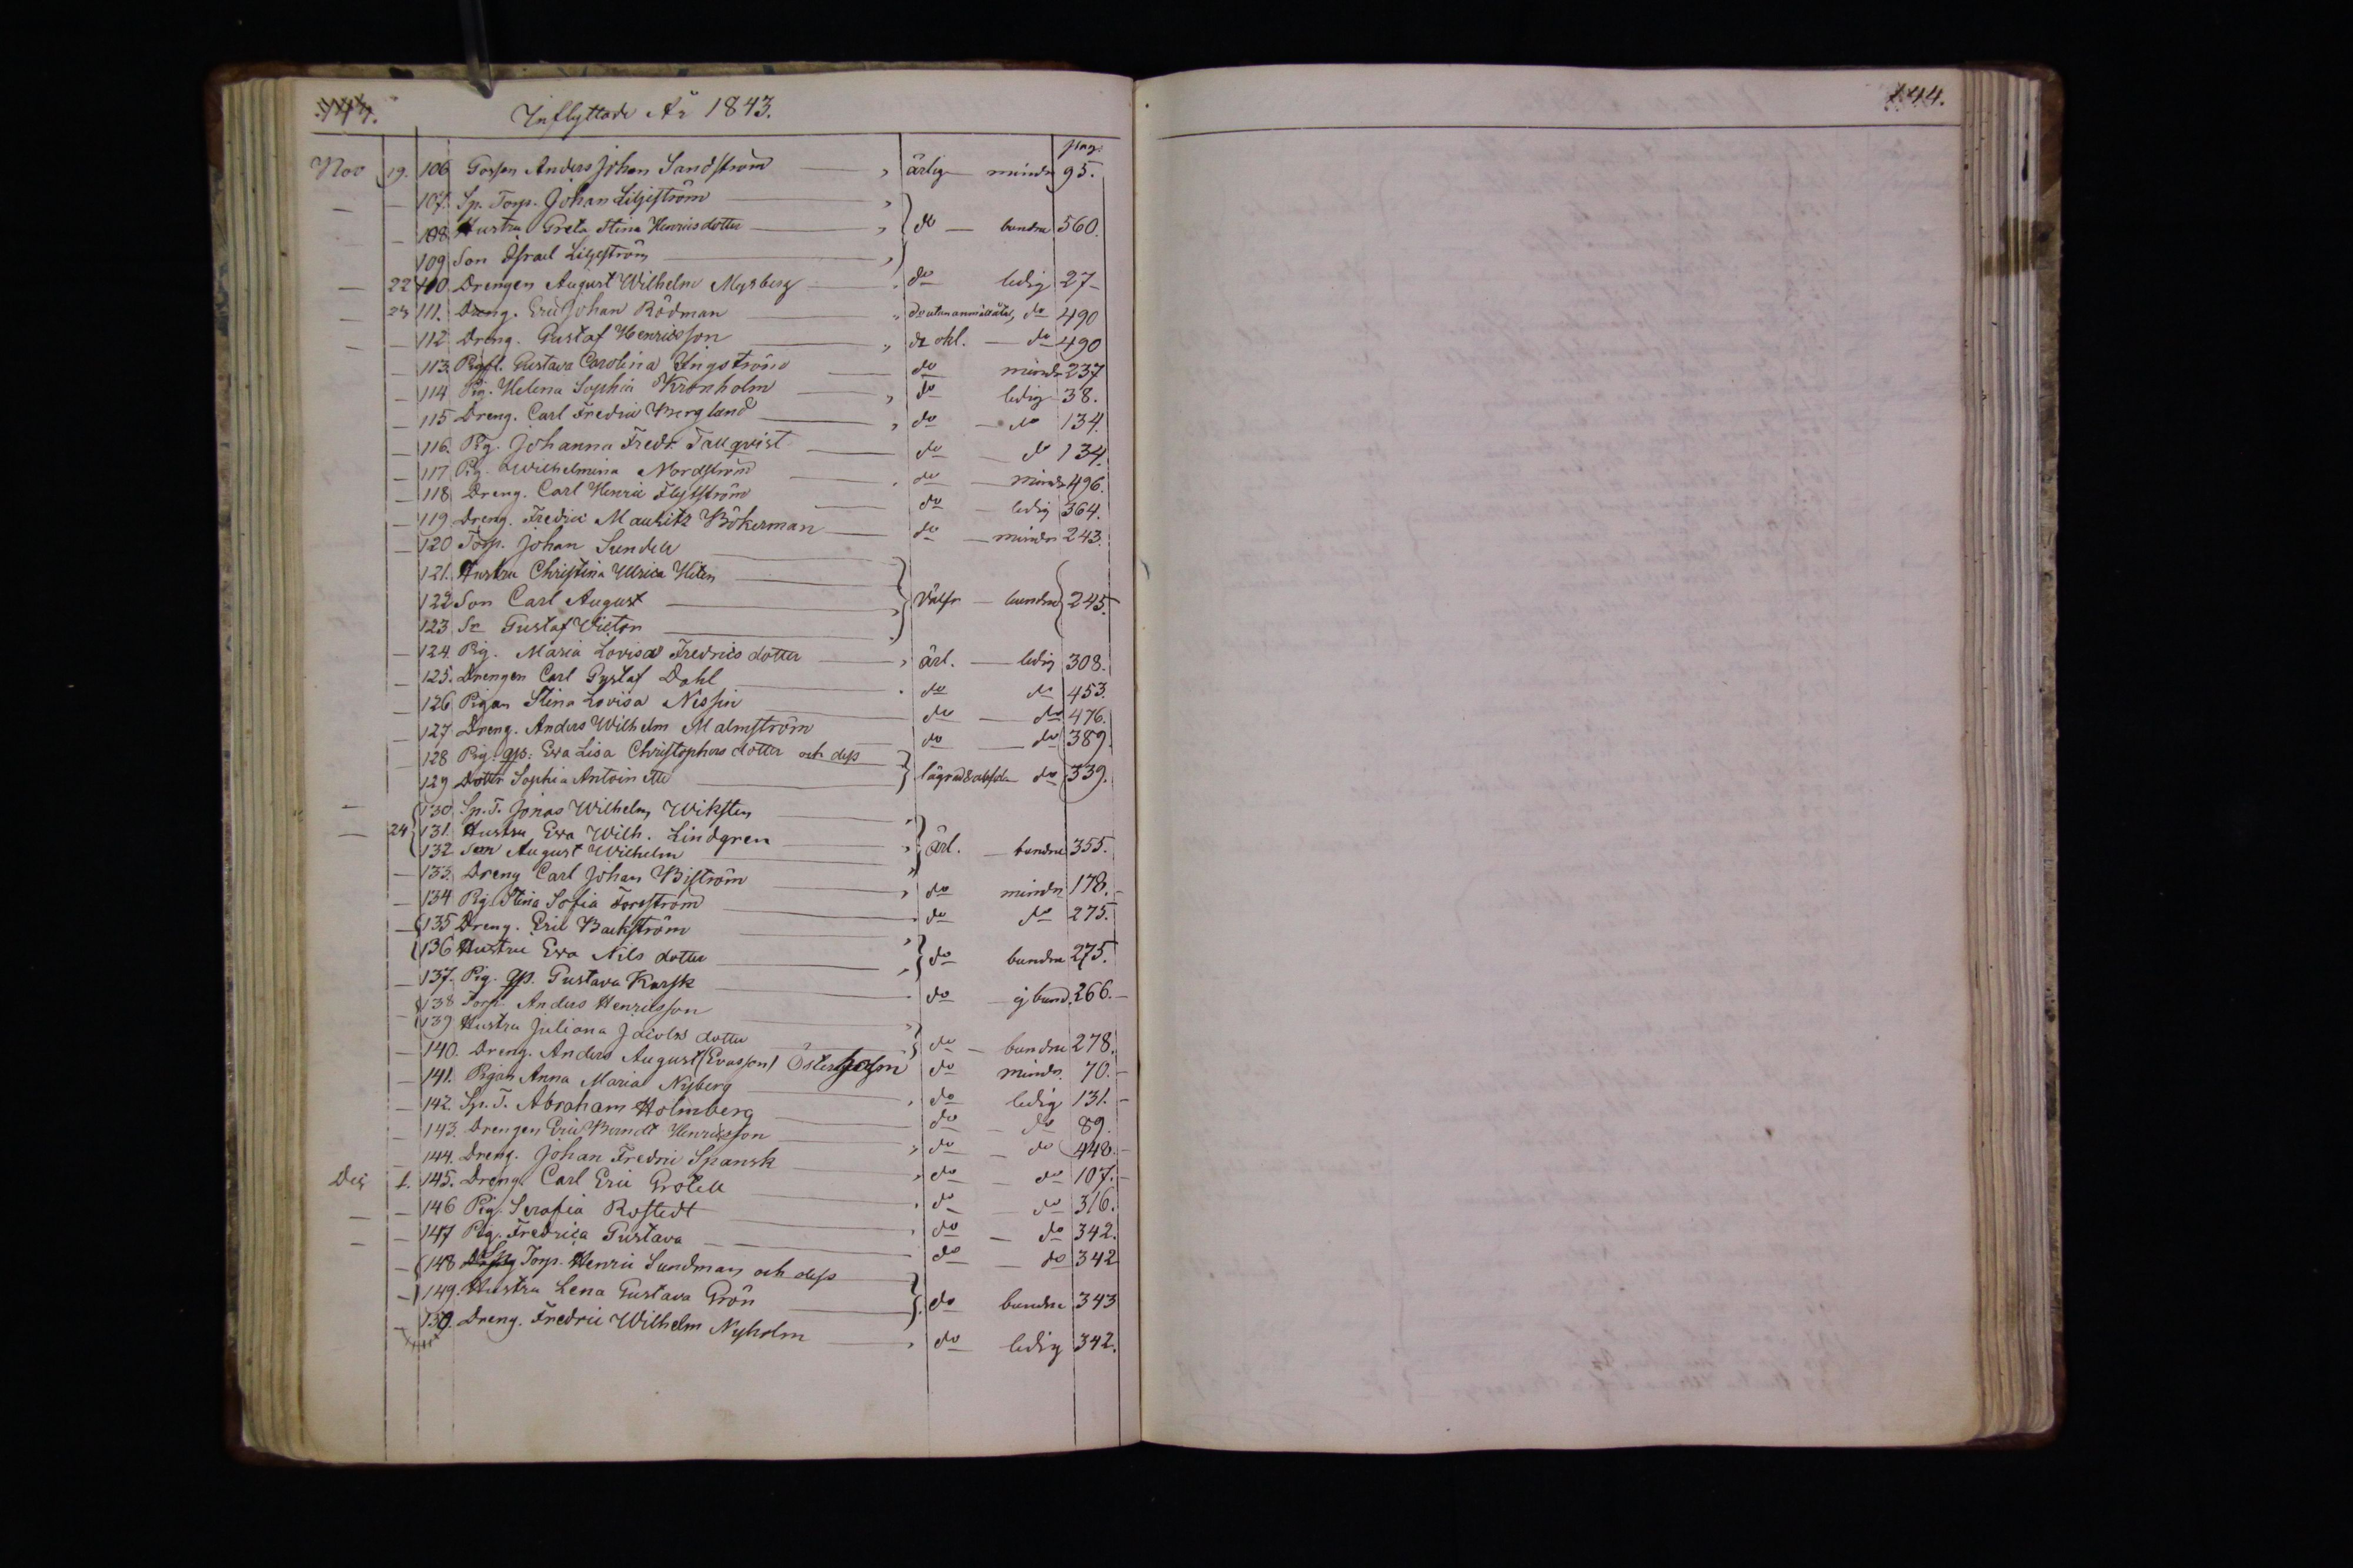 Inflyttade År 1843.
144.
pag.
Nov 19. 106 Gossen Anders Johan Sandström — ärlig — mindr 95.
— — 107. Sp. Torp. Johan Liljeström —
— 108 Hustru Greta Stina Henricsdotter — do — bundne 560.
109 Son Israel Liljeström —
— 22 110. Drengen August Wilhelm Nysberg — do ledig 27 —
— 23 111. Dreng. Eric Johan Rödman — do do 490
— — 112 Dreng. Gustaf Henricsson — do okl. — do 490
— 113. Gustava Carolina Ungström — do mindr 237
— 114 Pig. Helena Sophia Kronholm — do ledig 38.
— 115 Dreng. Carl Fredric Berglund — do — do 134.
— 116. Pig. Johanna Fredr. Tallqvist — do — do 134.
— 117 Pig. Wilhelmina Nordström — do — mindr 496.
— 118 Dreng. Carl Henric Flytström — do — ledig 364.
— 119. Dreng. Fredric Mauritz Bökerman — do — mindr 243.
— 120 Torp. Johan Sundell —
121. Hustru Christina Ulrica —
122 Son Carl August — välfr — bundne 245.
123 Sn Gustaf Victor —
— 124. Pig. Maria Lovisa Fredricsdotter — ärl. — ledig 308.
— 125. Drengen Carl Gustaf Dahl — do do 453.
— 126 Pigan Stina Lovisa Nissin — do — do 476.
— 127. Dreng. Anders Wilhelm Malmström — do — do 389.
— 128 Pig. qp. Eva Lisa Christophersdotter och dess —
129 Dotter Sophia Antoinette — lägrad & absol. do 339.
— 130. Sp. T. Jonas Wilhelm Wiksten —
— 24 131. Hustru Eva Wilh. Lindgren —
132. Son August Wilhelm — ärl. — bundne 355.
— 133. Dreng Carl Johan Biström — do mindr 178. —
— 134 Pig. Stina Sofia Forsström — do do 275.
— 135 Dreng. Eric Backström —
136 Hustru Eva Nilsdotter — do bundne 275.
— 137. Pig. qp. Gustava Karsk — do — ej bund. 266. —
— 138 Torp. Anders Henricsson —
139 Hustru Juliana Jacobsdotter — do — bundne 278.
— 140. Dreng. Anders August (Evasson) Österholm do mindr. 70. —
— 141. Pigan Anna Maria Nyberg — do ledig 131. —
— 142. Sp. T. Abraham Holmberg — do — do 89.
— 143. Drengen Eric Berndt Henricsson — do — do 448. —
— 144. Dreng. Johan Fredric Spansk — do — do 107. —
Dec 1. 145. Dreng. Carl Eric Grotell — do — do 316.
— — 146 Pig. Serafia Rostedt — do — do 342.
— — 147 Pig. Fredrica Gustava — do — do 342
— 148 Sp. Torp. Henric Sundman och dess —
— 149. Hustru Lena Gustava Grön — do bundne 343
— 150. Dreng. Fredric Wilhelm Nyholm — do ledig 342.
144.